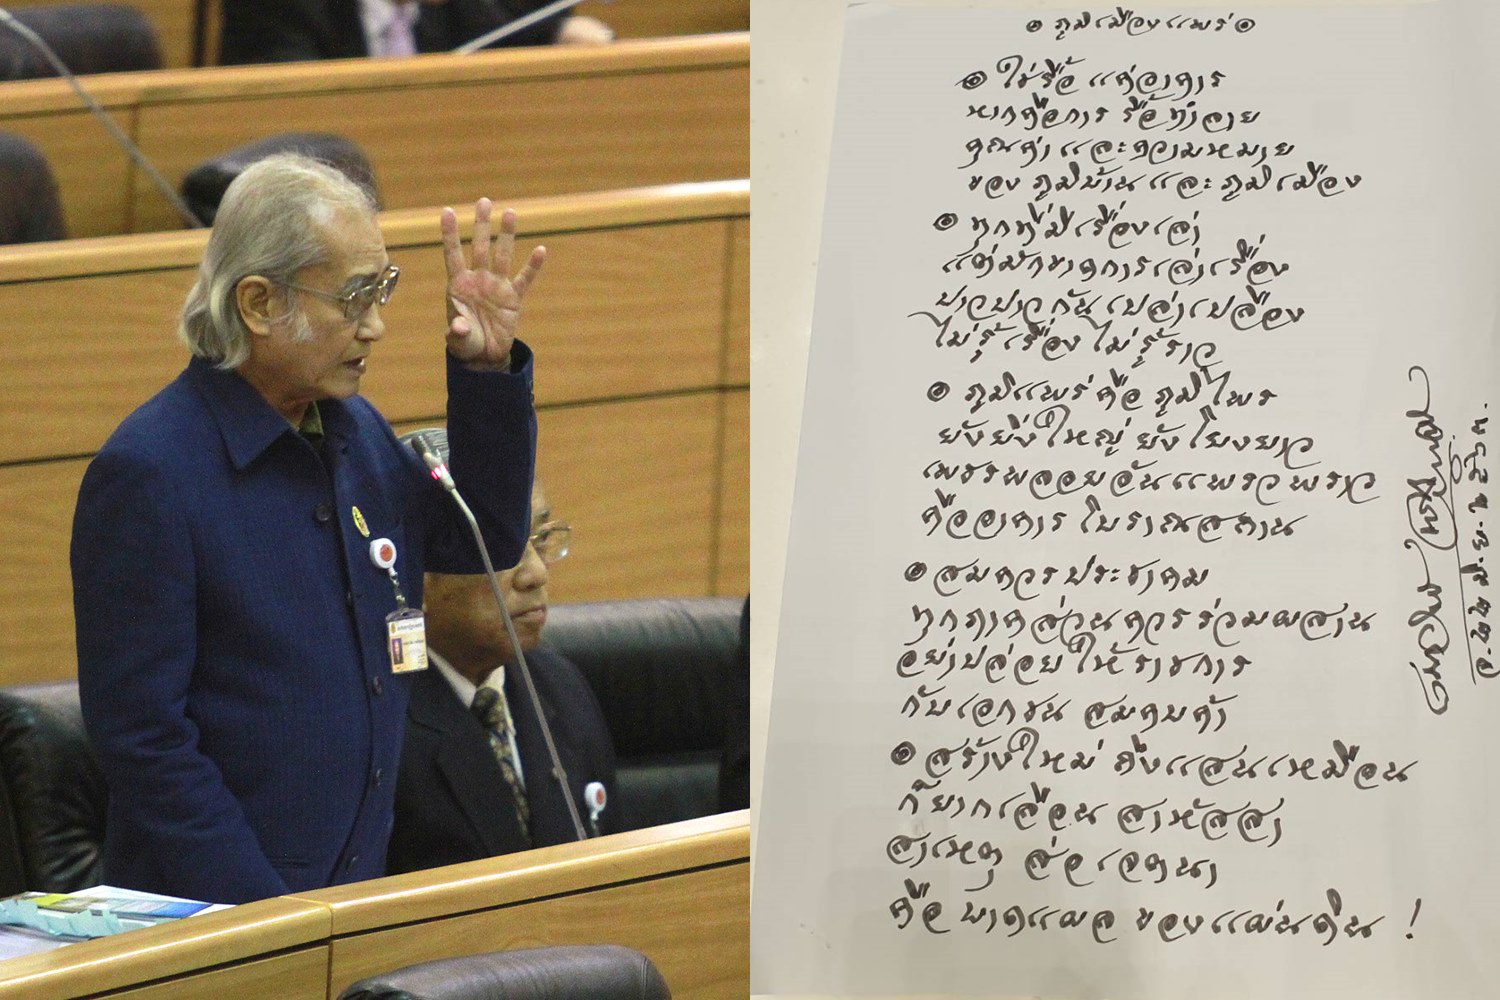 ๏ ภูมิเมืองแพร่ ๏
๏ ใช่รื้อ แค่อาคาร
หากคือการ รื้อทำลาย
คุณค่า และความหมาย
ของ ภูมิบ้าน และ ภูมิเมือง
๏ ทุกที่มีเรื่องเล่า
แต่มักขาดการเล่าเรื่อง
ขาวขาว กัน เปล่าเปลือง
ไม่รู้เรื่อง ไม่รู้ราว
๏ ภูมิแพร่ คือ ภูมิไพร
ยังยิ่งใหญ่ ยังโยงยาว
เพชรพลอยอันแพรวพราว
คืออาคาร โบราณสถาน
๏ สมควรประชาคม
ทุกภาคส่วนควรร่วมผสาน
อย่าปล่อยให้ราชการ
กับเอกชน สมคบค้า
๏ สร้างใหม่ ถึงแสนเหมือน
ก็ยากเลือน สาหัสสา
สาเหตุ ส่อ เจตนา
คือ บาดแผล ของแผ่นดิน !
เนาวรัตน์ พงษ์ไพบูลย์